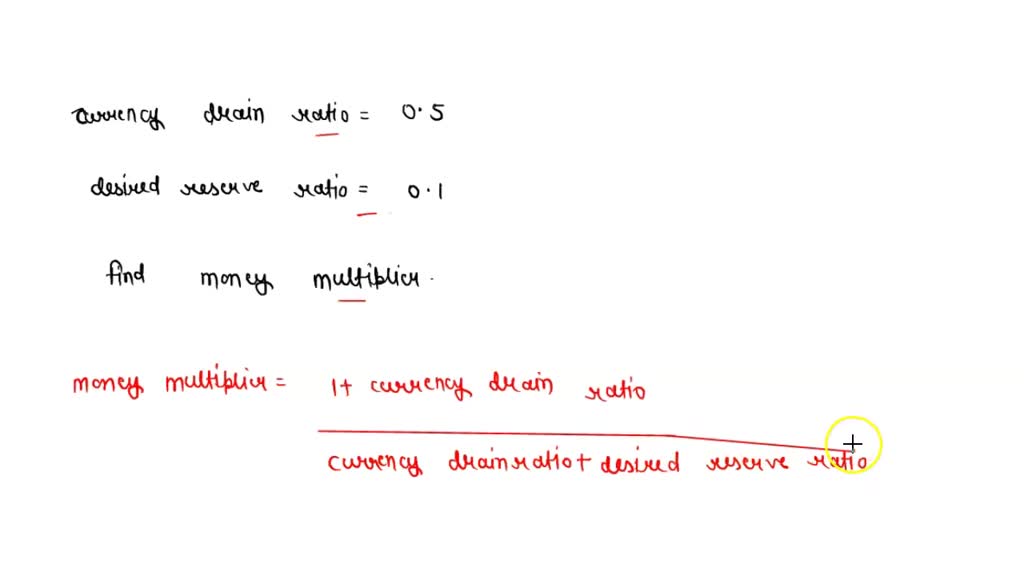 currency drain ratio = 0.5
desired reserve ratio = 0.1
find money multiplier.
money multiplier = 1+ currency drain ratio
currency drain ratio + desired reserve ratio